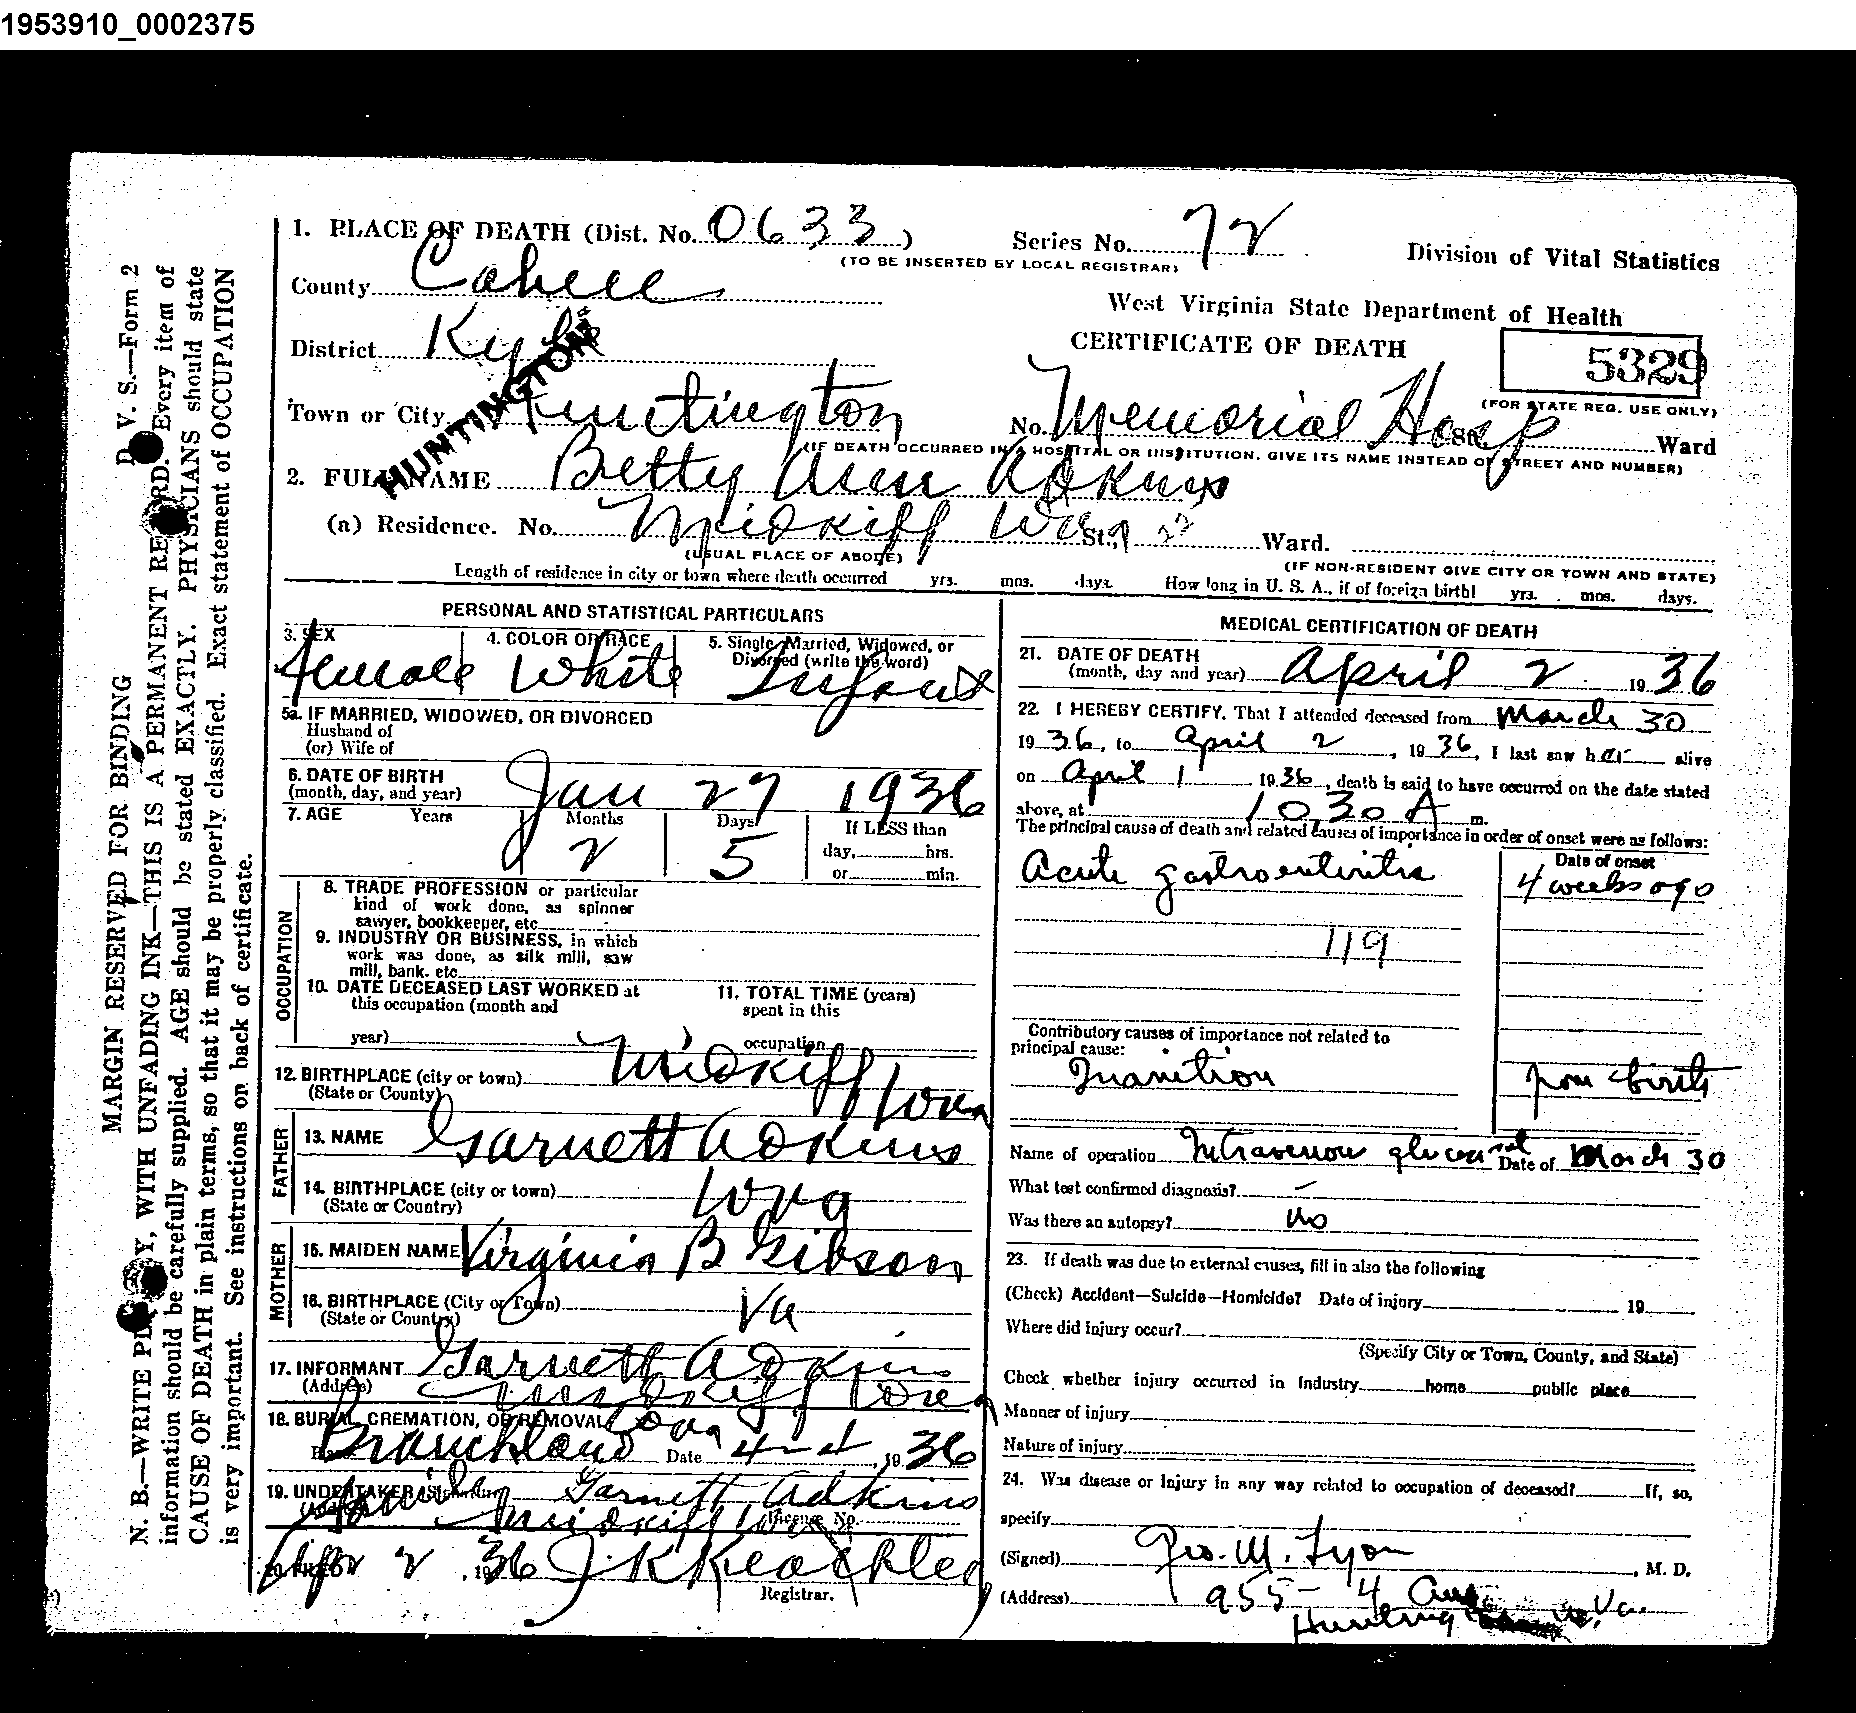 1953910_0002375
1. PLACE OF DEATH (Dist. No. 0633)
Series No. 72
(TO BE INSERTED BY LOCAL REGISTRAR)
Division of Vital Statistics
County Cabell
West Virginia State Department of Health
District Kyle
CERTIFICATE OF DEATH
5329
(FOR STATE REG. USE ONLY)
HUNTINGTON
Town or City Huntington No. Memorial Hosp St. Ward
(IF DEATH OCCURRED IN A HOSPITAL OR INSTITUTION, GIVE ITS NAME INSTEAD OF STREET AND NUMBER)
2. FULL NAME Betty Ann Adkins
(a) Residence. No. Midkiff W Va St., Ward.
(USUAL PLACE OF ABODE)
(IF NON-RESIDENT GIVE CITY OR TOWN AND STATE)
Length of residence in city or town where death occurred yrs. mos. days. How long in U. S. A., if of foreign birth? yrs. mos. days.
PERSONAL AND STATISTICAL PARTICULARS
3. SEX
4. COLOR OR RACE
5. Single, Married, Widowed, or
Divorced (write the word)
Female White Infant
5a. IF MARRIED, WIDOWED, OR DIVORCED
Husband of
(or) Wife of
6. DATE OF BIRTH
(month, day, and year) Jan 27 1936
7. AGE Years Months Days If LESS than
2 5 day, hrs.
or min.
OCCUPATION
8. TRADE PROFESSION or particular
kind of work done, as spinner
sawyer, bookkeeper, etc
9. INDUSTRY OR BUSINESS, in which
work was done, as silk mill, saw
mill, bank. etc
10. DATE DECEASED LAST WORKED at
this occupation (month and
year)
11. TOTAL TIME (years)
spent in this
occupation
12. BIRTHPLACE (city or town) Midkiff
(State or County) W Va
FATHER
13. NAME Garnett Adkins
14. BIRTHPLACE (city or town) W Va
(State or Country)
MOTHER
15. MAIDEN NAME Virginia B Gibson
16. BIRTHPLACE (City or Town) Va
(State or Country)
17. INFORMANT Garnett Adkins
(Address) Midkiff W Va
18. BURIAL, CREMATION, OR REMOVAL W Va
Branchland Date 4-4, 1936
19. UNDERTAKER Family Garnett Adkins
Midkiff W Va
License No.
20. FILED Apr 2, 1936 J. K Keachley
Registrar.
MEDICAL CERTIFICATION OF DEATH
21. DATE OF DEATH
(month, day and year) April 2 1936
22. I HEREBY CERTIFY, That I attended deceased from March 30
1936, to April 2, 1936, I last saw her alive
on April 1 1936, death is said to have occurred on the date stated
above, at 10,30 A m.
The principal cause of death and related causes of importance in order of onset were as follows:
Date of onset
Acute gastroenteritis 4 weeks ago
119
Contributory causes of importance not related to
principal cause:
Inanition from birth
Name of operation Intravenous glucose Date of March 30
What test confirmed diagnosis? —
Was there an autopsy? No
23. If death was due to external causes, fill in also the following
(Check) Accident—Suicide—Homicide? Date of injury 19
Where did injury occur?
(Specify City or Town, County, and State)
Check whether injury occurred in Industry home public place
Manner of injury
Nature of injury
24. Was disease or Injury in any way related to occupation of deceased? If, so,
specify
(Signed) Geo. M. Lyon, M. D.
(Address) 955 - 4 Ave
Huntington W. Va.
D. V. S.—Form 2
MARGIN RESERVED FOR BINDING
N. B.—WRITE PLAINLY, WITH UNFADING INK—THIS IS A PERMANENT RECORD. Every item of
information should be carefully supplied. AGE should be stated EXACTLY. PHYSICIANS should state
CAUSE OF DEATH in plain terms, so that it may be properly classified. Exact statement of OCCUPATION
is very important. See instructions on back of certificate.